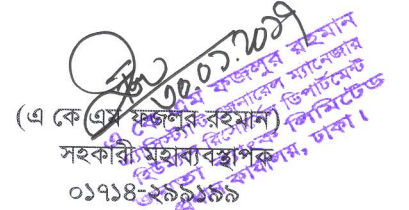 ৩০.০১.২০১৭
(এ কে এম ফজলুর রহমান)
সহকারী মহাব্যবস্থাপক
০১৭১৪-২৯৯১৯৯
এ কে এম ফজলুর রহমান
এ্যাসিস্ট্যান্ট জেনারেল ম্যানেজার
হিউম্যান রিসোর্সেস ডিপার্টমেন্ট
জনতা ব্যাংক লিমিটেড
প্রধান কার্যালয়, ঢাকা।